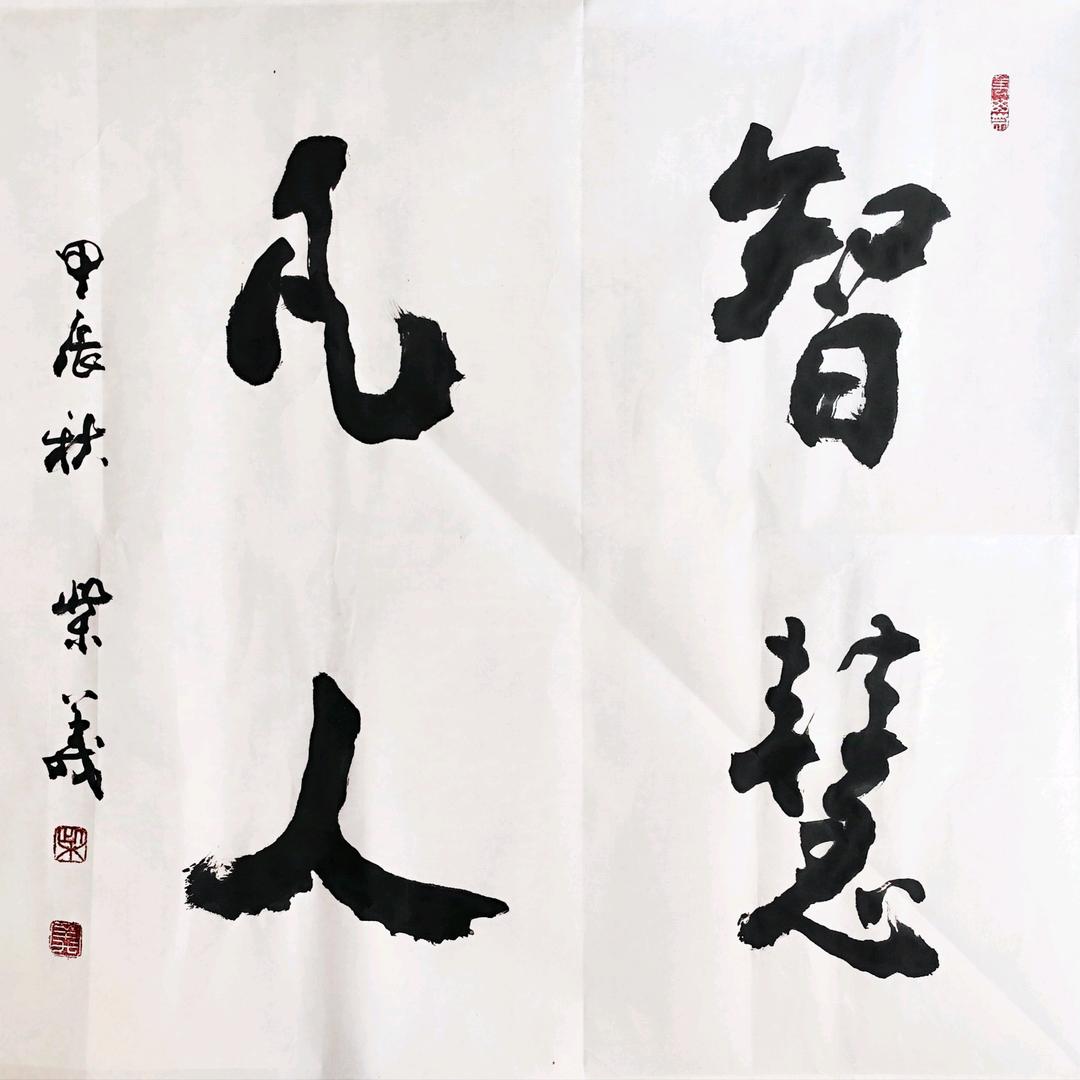 智慧
凡人
甲辰秋 柴義
柴